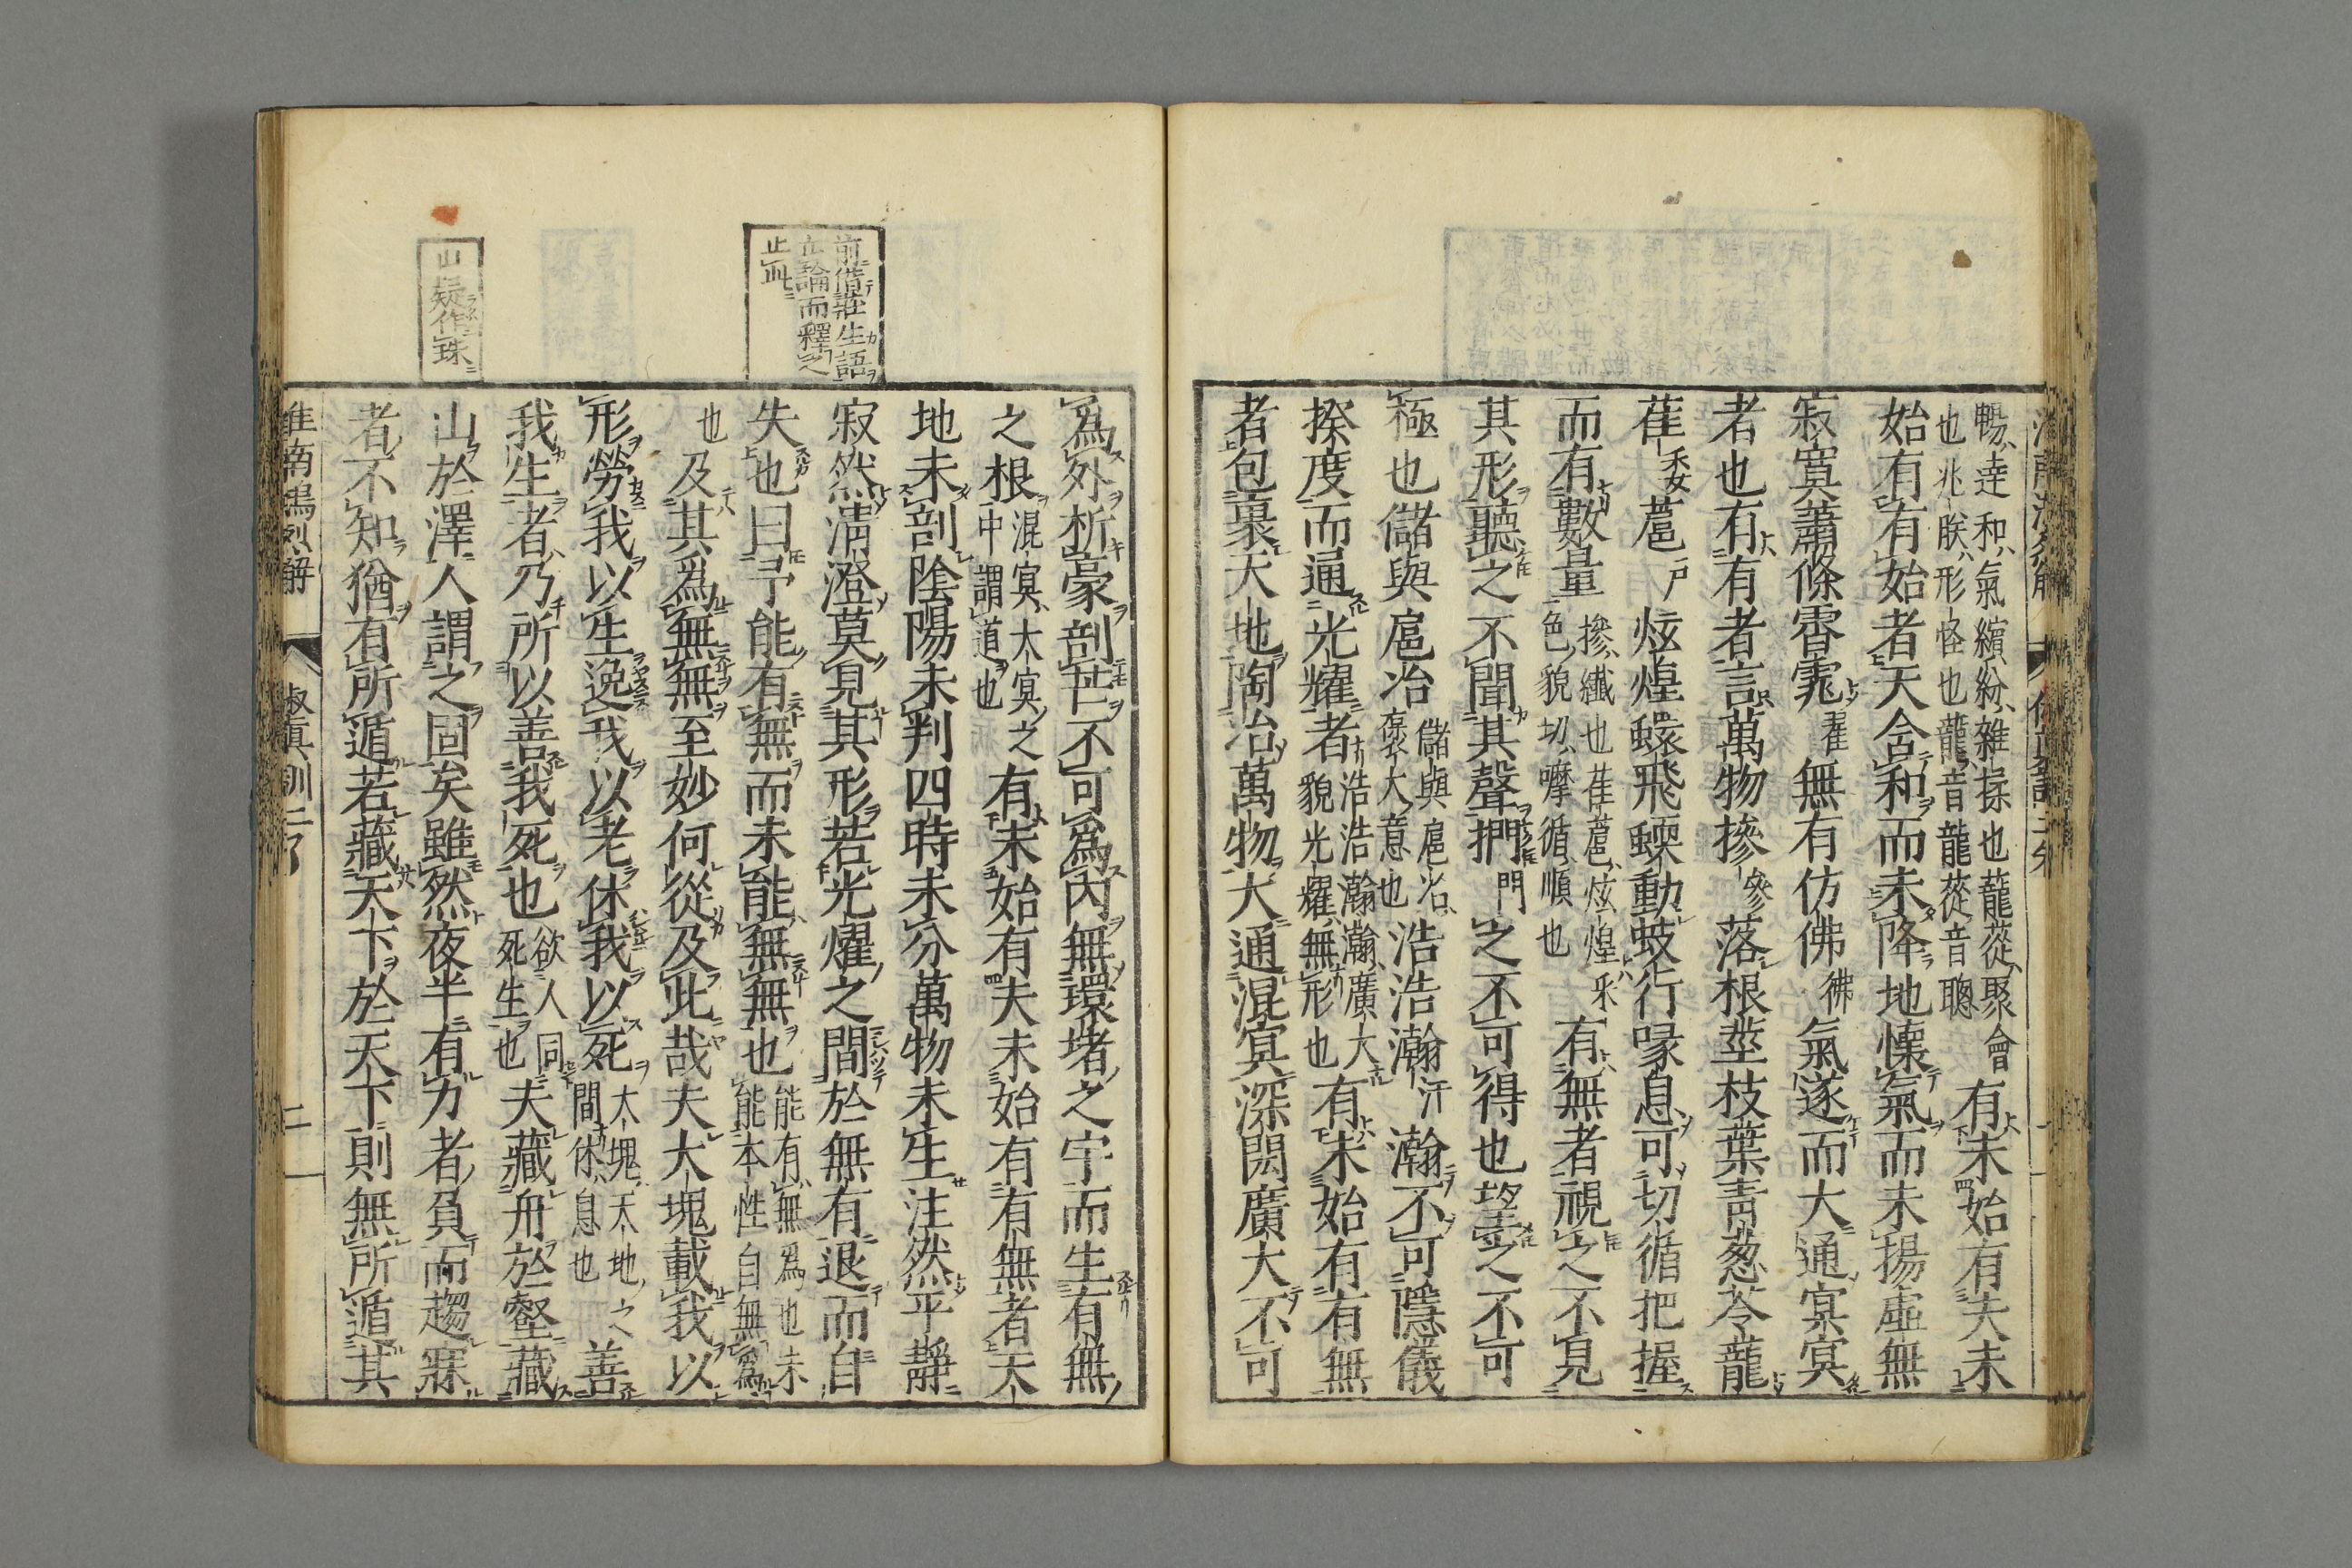 暢逹和氣繽紛雜揉也蘢蓯聚會
也兆朕形怪也蘢音龍蓯音聰
有未始有夫未
始有有始者天含和而未降地懷氣而未揚虛無
寂寞蕭條霄雿翟無有仿佛彿氣遂而大通冥冥
者也有有者言萬物摻參落根莖枝葉青葱苓蘢
萑委蔰戶炫煌蠉飛蝡動蚑行喙息可切循把握
而有數量
摻纖也萑蔰炫煌采
色貌切嚤循順也
有無者視之不見
其形聽之不聞其聲捫門之不可得也望之不可
極也儲與扈冶
儲與扈冶
褒大意也
浩浩瀚汗瀚不可隱儀
揆度而通光耀者
浩浩瀚瀚廣大
貌光耀無形也
有未始有有無
者包裹天地陶冶萬物大通混冥深閎廣大不可
前借莊生語
立論而釋之
止此
為外析豪剖芒不可為內無環堵之宇而生有無
之根
混冥太冥之
中謂道也
有未始有夫未始有有無者天
地未剖陰陽未判四時未分萬物未生汪然平靜
寂然清澄莫見其形若光燿之間於無有退而自
失也曰予能有無而未能無無也
能有無為也未
能本性自無為
也
及其為無無至妙何從及此哉夫大塊載我以
形勞我以生逸我以老休我以死
大塊天地之
間休息也
善
我生者乃所以善我死也
欲人同
死生也
夫藏舟於壑藏
山疑作珠
山於澤人謂之固矣雖然夜半有力者負而趨寐
者不知猶有所遁若藏天下於天下則無所遁其
淮南鴻烈解
俶真訓二
二